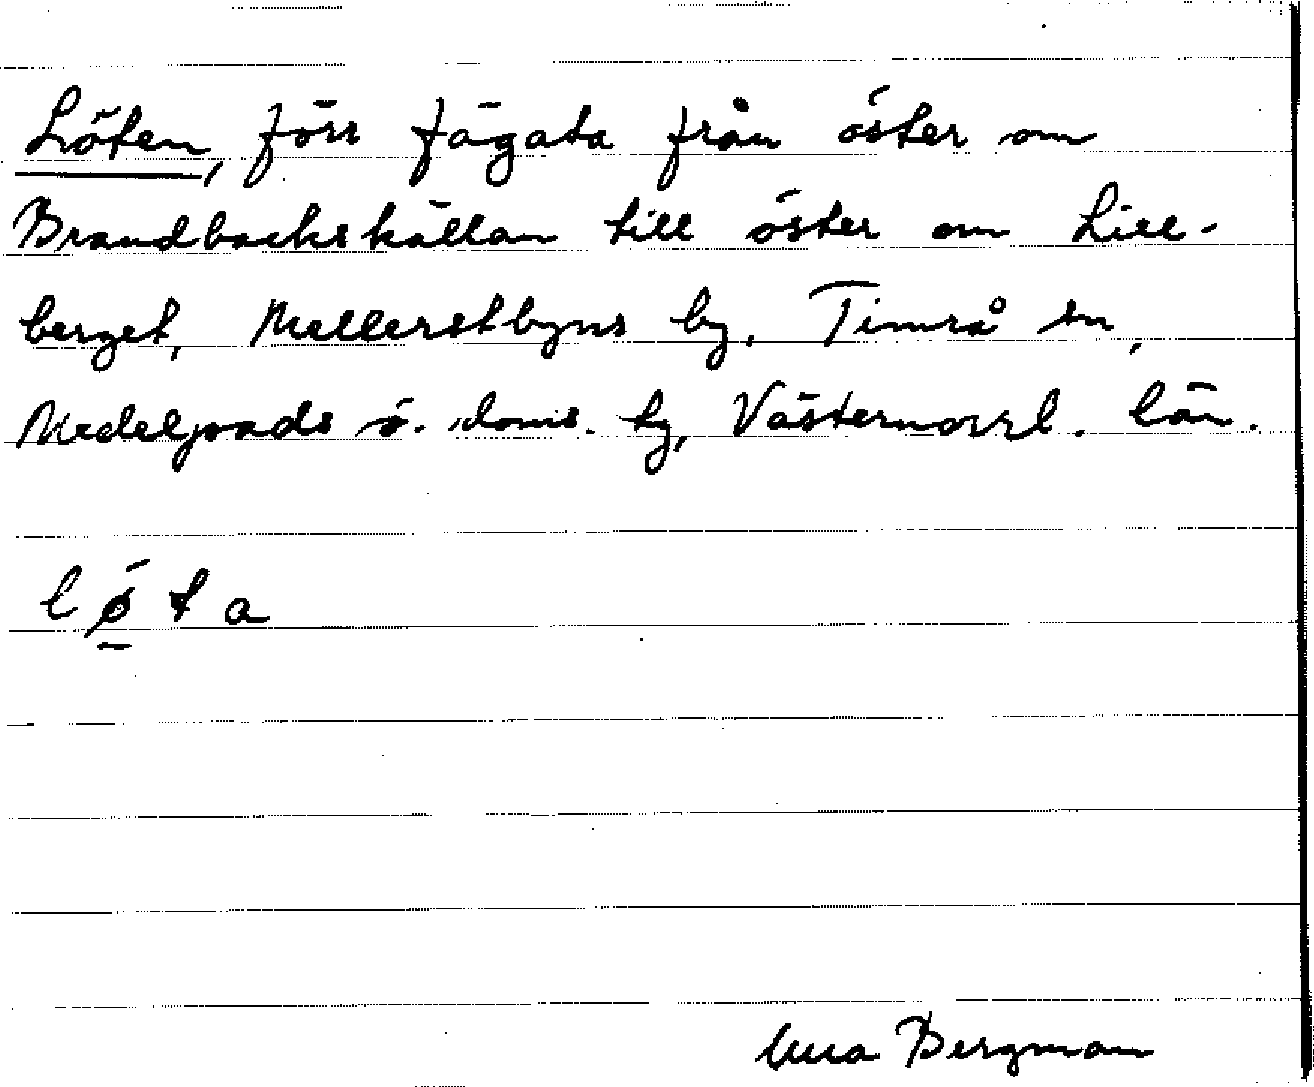 Löten, förr fägata från öster om
Brandbackskällan till öster om Lill-
berget, Mellerstbyns by, Timrå sn,
Medelpads ö. doms. tg, Västernorrl. län.
l ø t a
Bergman